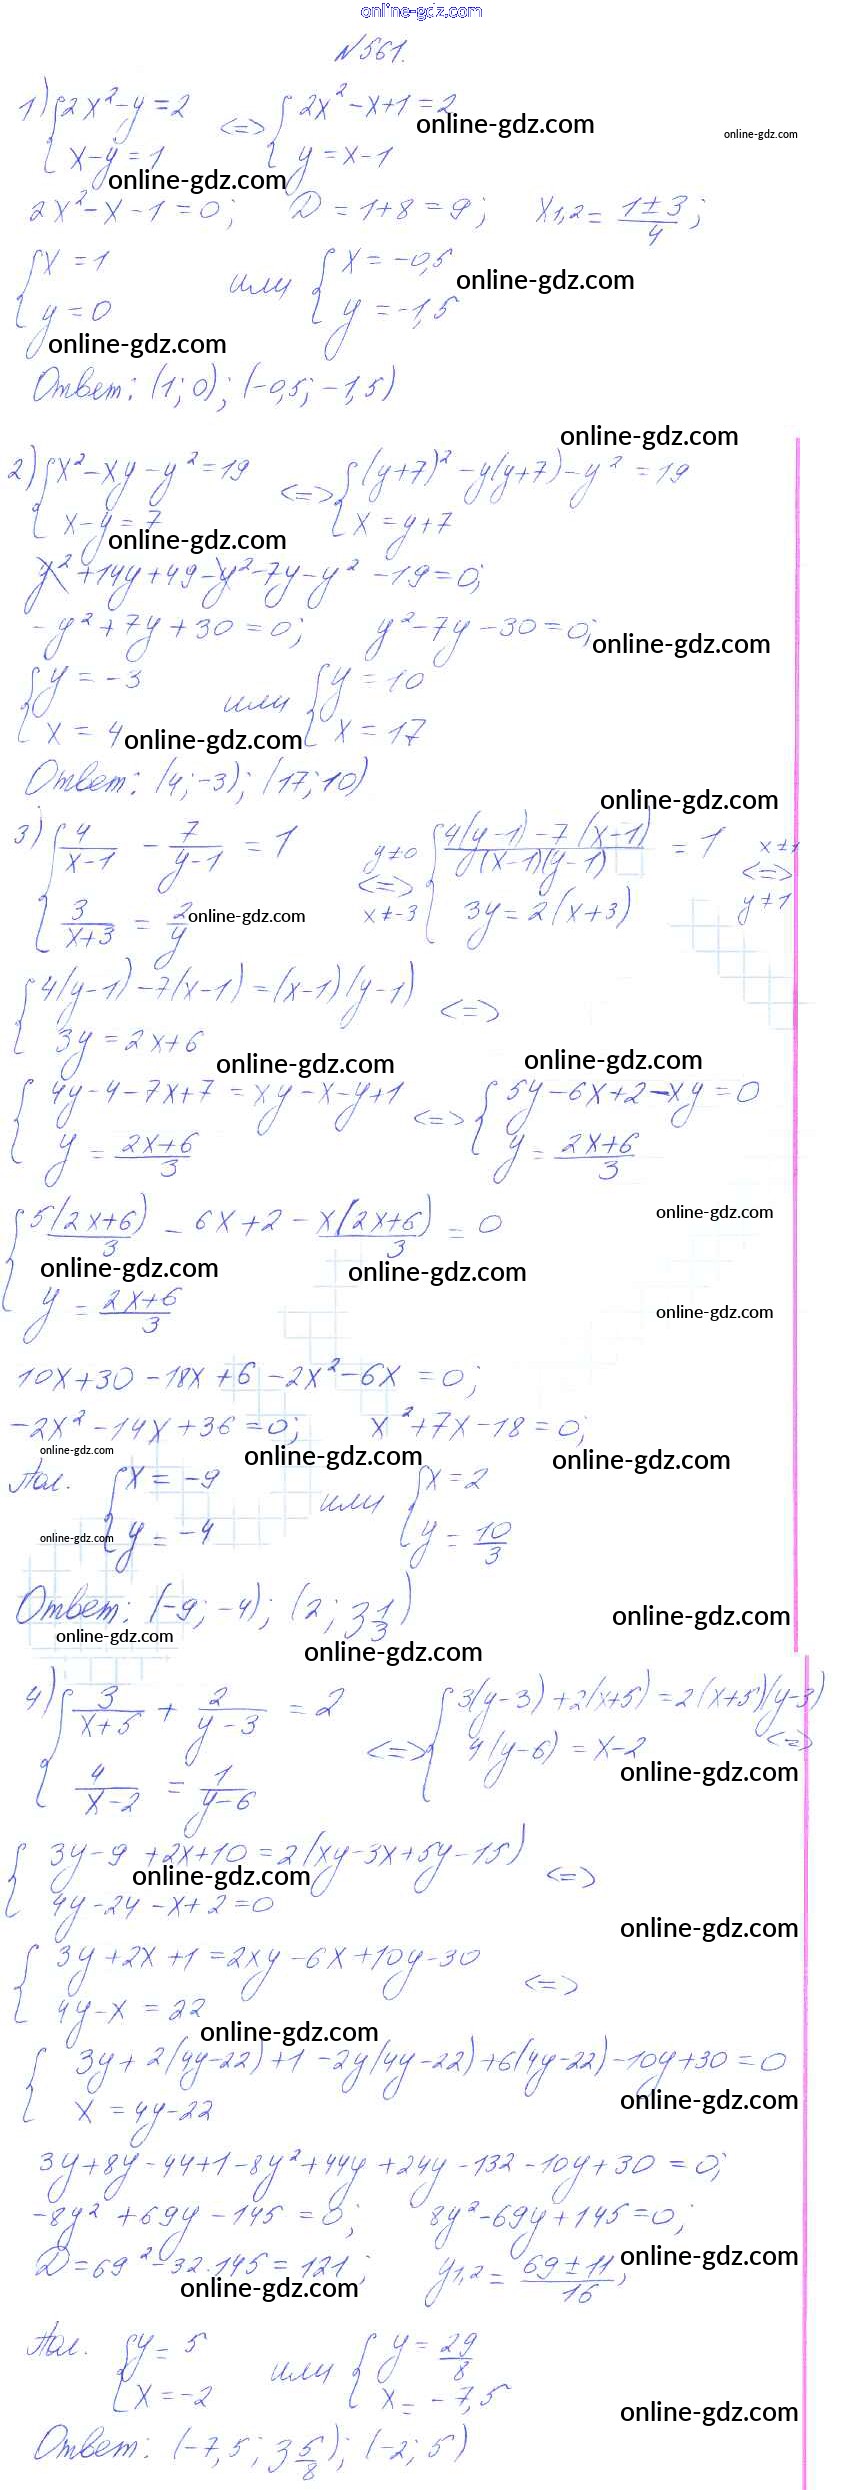 online-gdz.com
№561.
1) { 2x² - y = 2 <=> { 2x² - x + 1 = 2
online-gdz.com online-gdz.com
x - y = 1 y = x - 1
online-gdz.com
2x² - x - 1 = 0; D = 1 + 8 = 9; x1,2 = (1 ± 3)/4;
{ x = 1 или { x = -0,5
online-gdz.com
y = 0 y = -1,5
online-gdz.com
Ответ: (1; 0); (-0,5; -1,5)
online-gdz.com
2) { x² - xy - y² = 19 <=> { (y+7)² - y(y+7) - y² = 19
x - y = 7 x = y + 7
online-gdz.com
y² + 14y + 49 - y² - 7y - y² - 19 = 0;
-y² + 7y + 30 = 0; y² - 7y - 30 = 0;
online-gdz.com
{ y = -3 или { y = 10
x = 4 x = 17
online-gdz.com
Ответ: (4; -3); (17; 10)
online-gdz.com
3) { 4/(x-1) - 7/(y-1) = 1 y≠0 <=> x≠-3 { (4(y-1) - 7(x-1))/((x-1)(y-1)) = 1 x≠1 <=> y≠1
3/(x+3) = 2/y 3y = 2(x+3)
online-gdz.com
{ 4(y-1) - 7(x-1) = (x-1)(y-1) <=>
3y = 2x + 6
online-gdz.com online-gdz.com
{ 4y - 4 - 7x + 7 = xy - x - y + 1 <=> { 5y - 6x + 2 - xy = 0
y = (2x+6)/3 y = (2x+6)/3
online-gdz.com
{ 5(2x+6)/3 - 6x + 2 - x(2x+6)/3 = 0
online-gdz.com online-gdz.com
y = (2x+6)/3
online-gdz.com
10x + 30 - 18x + 6 - 2x² - 6x = 0;
-2x² - 14x + 36 = 0; x² + 7x - 18 = 0;
online-gdz.com online-gdz.com online-gdz.com
Пол. { x = -9 или { x = 2
y = -4 y = 10/3
online-gdz.com
Ответ: (-9; -4); (2; 3 1/3)
online-gdz.com
online-gdz.com
online-gdz.com
4) { 3/(x+5) + 2/(y-3) = 2 <=> { 3(y-3) + 2(x+5) = 2(x+5)(y-3) <=>
4/(x-2) = 1/(y-6) 4(y-6) = x-2
online-gdz.com
{ 3y - 9 + 2x + 10 = 2(xy - 3x + 5y - 15) <=>
online-gdz.com
4y - 24 - x + 2 = 0
online-gdz.com
{ 3y + 2x + 1 = 2xy - 6x + 10y - 30 <=>
4y - x = 22
online-gdz.com
{ 3y + 2(4y-22) + 1 - 2y(4y-22) + 6(4y-22) - 10y + 30 = 0
online-gdz.com
x = 4y - 22
3y + 8y - 44 + 1 - 8y² + 44y + 24y - 132 - 10y + 30 = 0;
-8y² + 69y - 145 = 0; 8y² - 69y + 145 = 0;
D = 69² - 32·145 = 121; y1,2 = (69 ± 11)/16;
online-gdz.com
online-gdz.com
Пол. { y = 5 или { y = 29/8
x = -2 x = -7,5
online-gdz.com
Ответ: (-7,5; 3 5/8); (-2; 5)